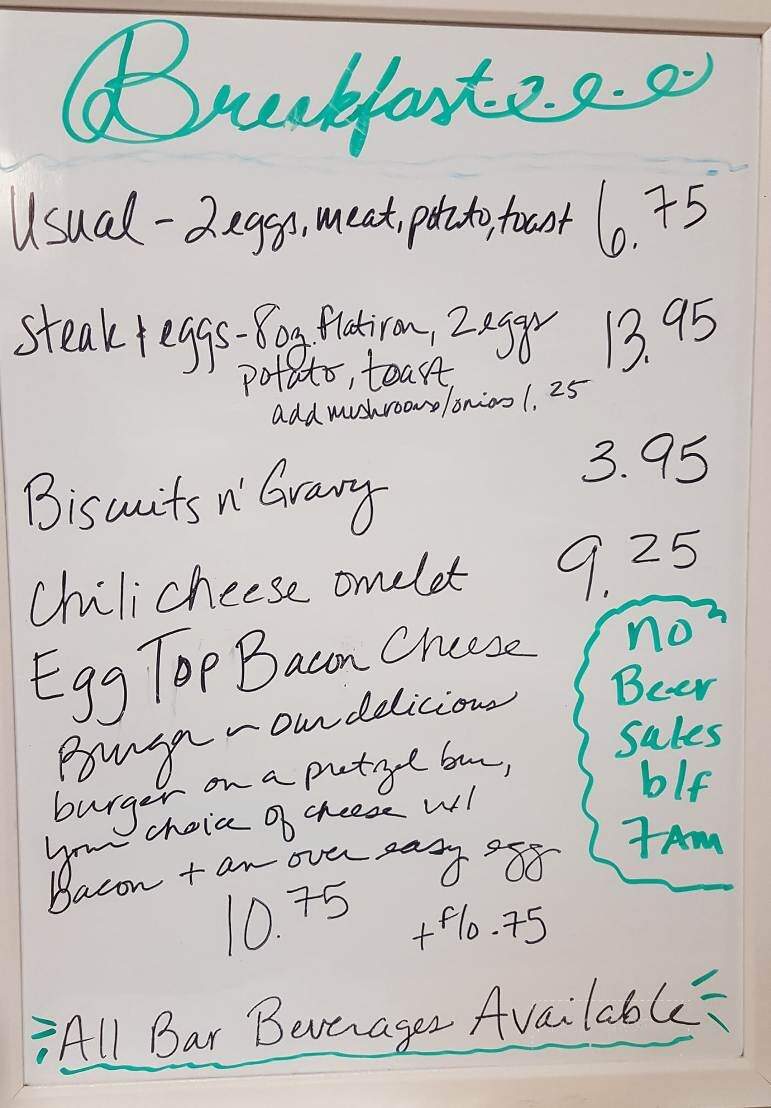 Breakfast...
Usual - 2 eggs, meat, potato, toast 6.75
Steak & eggs - 8oz. flatiron, 2 eggs 13.95
potato, toast
add mushrooms/onions 1.25
Biscuits n' Gravy 3.95
Chili cheese omelet 9.25
Egg Top Bacon Cheese
Burger ~ our delicious
burger on a pretzel bun,
your choice of cheese w/
bacon + an over easy egg
10.75 + f/o .75
no
Beer
Sales
b/f
7AM
All Bar Beverages Available